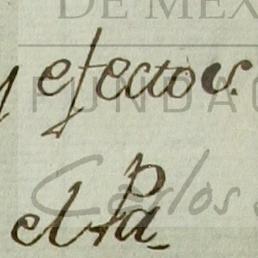 DE MÉX
y efectos.
FUNDAC
Carlos
el Pa